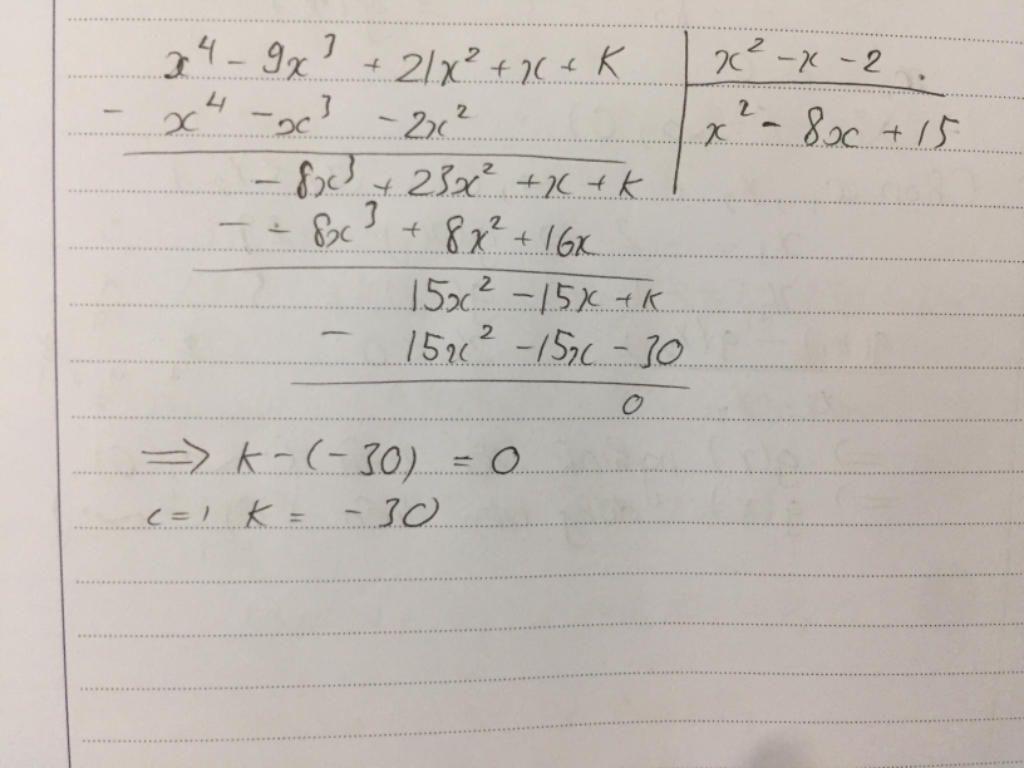 x⁴ - 9x³ + 21x² + x + K | x² - x - 2
- x⁴ - x³ - 2x² | x² - 8x + 15
- 8x³ + 23x² + x + k
- - 8x³ + 8x² + 16x
15x² - 15x + k
- 15x² - 15x - 30
0
=> k - (-30) = 0
<=> K = -30